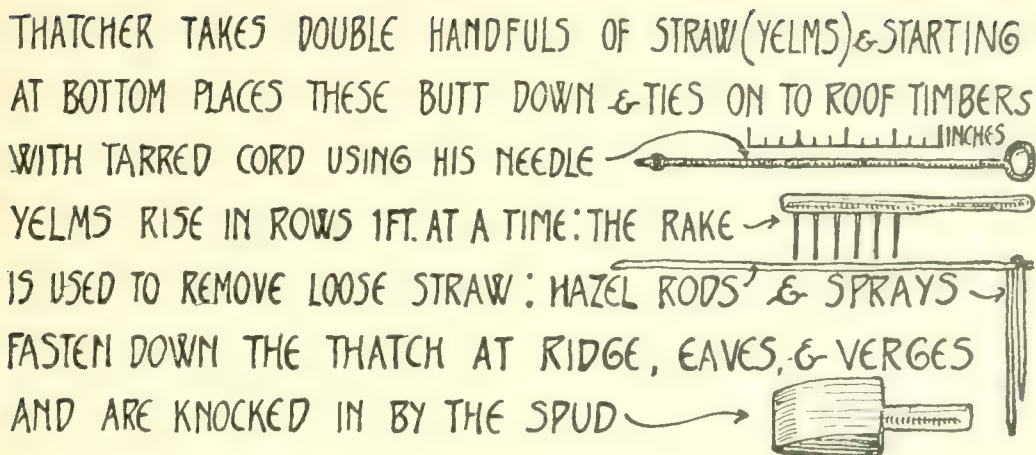 THATCHER TAKES DOUBLE HANDFULS OF STRAW (YELMS) & STARTING
AT BOTTOM PLACES THESE BUTT DOWN & TIES ON TO ROOF TIMBERS
INCHES
WITH TARRED CORD USING HIS NEEDLE
YELMS RISE IN ROWS 1FT. AT A TIME: THE RAKE
IS USED TO REMOVE LOOSE STRAW: HAZEL RODS & SPRAYS
FASTEN DOWN THE THATCH AT RIDGE, EAVES, & VERGES
AND ARE KNOCKED IN BY THE SPUD